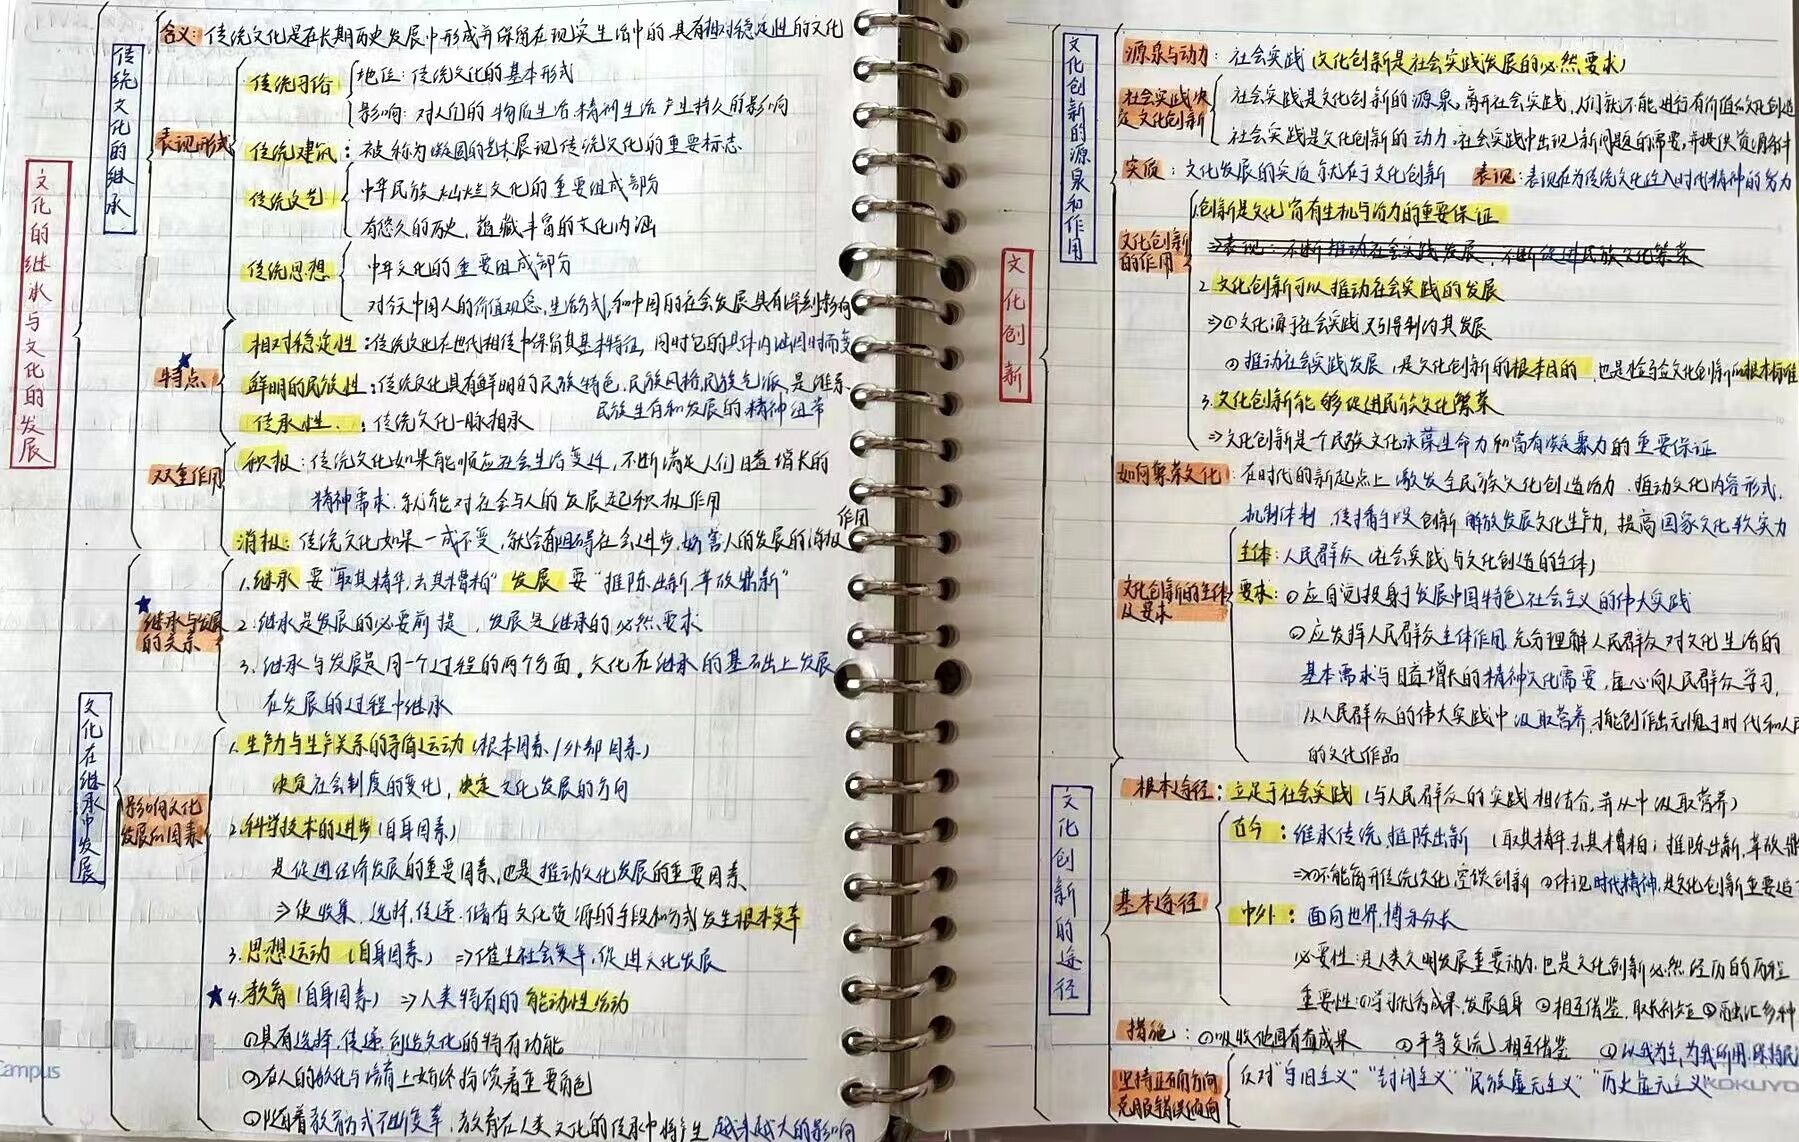 文化的继承与文化的发展
传统文化的继承
含义：传统文化是在长期历史发展中形成并保留在现实生活中的 具有相对稳定性的文化
表现形式
传统习俗
地位：传统文化的基本形式
影响：对人们的物质生活 精神生活产生持久的影响
传统建筑：被称为凝固的艺术，展现传统文化的重要标志
传统文艺
中华民族灿烂文化的重要组成部分
有悠久的历史，蕴藏丰富的文化内涵
传统思想
中华文化的重要组成部分
对今天中国人的价值观念，生活方式，和中国的社会发展具有深刻影响
特点
相对稳定性：传统文化在世代相传中保留其基本特征，同时它的具体内涵因时而变
鲜明的民族性：传统文化具有鲜明的民族特色、民族风格，民族气派，是维系
民族生存和发展的精神纽带
传承性：传统文化一脉相承
双重作用
积极：传统文化如果能顺应社会生活变迁，不断满足人们日益增长的
精神需求，就能对社会与人的发展起积极作用
消极：传统文化如果一成不变，就会阻碍社会进步，妨害人的发展的消极
作用
文化在继承中发展
继承与发展的关系
1.继承 要"取其精华，去其糟粕" 发展 要"推陈出新，革故鼎新"
2.继承是发展的必要前提，发展是继承的必然要求
3.继承与发展是同一个过程的两个方面。文化在继承的基础上发展
在发展的过程中继承
影响文化发展的因素
1.生产力与生产关系的矛盾运动（根本因素/外部因素）
决定社会制度的变化，决定文化发展的方向
2.科学技术的进步（自身因素）
是促进经济发展的重要因素，也是推动文化发展的重要因素
⇒使收集、选择、传递、储存文化资源的手段和方式发生根本变革
3.思想运动（自身因素）⇒催生社会变革，促进文化发展
4.教育（自身因素）⇒人类特有的能动性活动
①具有选择、传递、创造文化的特有功能
②在人的教化与培育上始终扮演着重要角色
③随着教育方式不断变革，教育在人类文化的传承中将产生越来越大的影响
Campus
文化创新
文化创新的源泉和作用
源泉与动力：社会实践（文化创新是社会实践发展的必然要求）
社会实践决定文化创新
社会实践是文化创新的源泉，离开社会实践，人们就不能进行有价值的文化创造
社会实践是文化创新的动力，社会实践中出现新问题的需要，并提供资源条件
实质：文化发展的实质就在于文化创新 表现：表现在为传统文化注入时代精神的努力
文化创新的作用
1.创新是文化富有生机与活力的重要保证
⇒表现：不断推动社会实践发展，不断促进民族文化繁荣
2.文化创新可以推动社会实践的发展
⇒①文化源于社会实践 又引导制约其发展
②推动社会实践发展，是文化创新的根本目的，也是检验文化创新的根本标准
3.文化创新能够促进民族文化繁荣
⇒文化创新是一个民族文化永葆生命力和富有凝聚力的重要保证
如何繁荣文化：在时代的新起点上激发全民族文化创造活力，推动文化内容形式，
机制体制，传播手段创新 解放发展文化生产力，提高国家文化软实力
文化创新的主体及要求
主体：人民群众（社会实践与文化创造的主体）
要求：①应自觉投身于发展中国特色社会主义的伟大实践
②应发挥人民群众主体作用，充分理解人民群众对文化生活的
基本需求与日益增长的精神文化需要，虚心向人民群众学习，
从人民群众的伟大实践中汲取营养，才能创作出无愧于时代和人民
的文化作品
文化创新的途径
根本途径：立足于社会实践（与人民群众的实践相结合，并从中汲取营养）
基本途径
古今：继承传统，推陈出新（取其精华，去其糟粕；推陈出新，革故鼎
⇒①不能离开传统文化，空谈创新 ②体现时代精神，是文化创新重要追
中外：面向世界，博采众长
必要性：是人类文明发展重要动力，也是文化创新必然经历的历程
重要性：①学习优秀成果，发展自身 ②相互借鉴，取长补短 ③融汇多种
措施：①吸收他国有益成果 ②平等交流，相互借鉴 ③以我为主，为我所用，保持民
坚持正确方向 克服错误倾向
反对"守旧主义""封闭主义""民族虚无主义""历史虚无主义"
KOKUYO